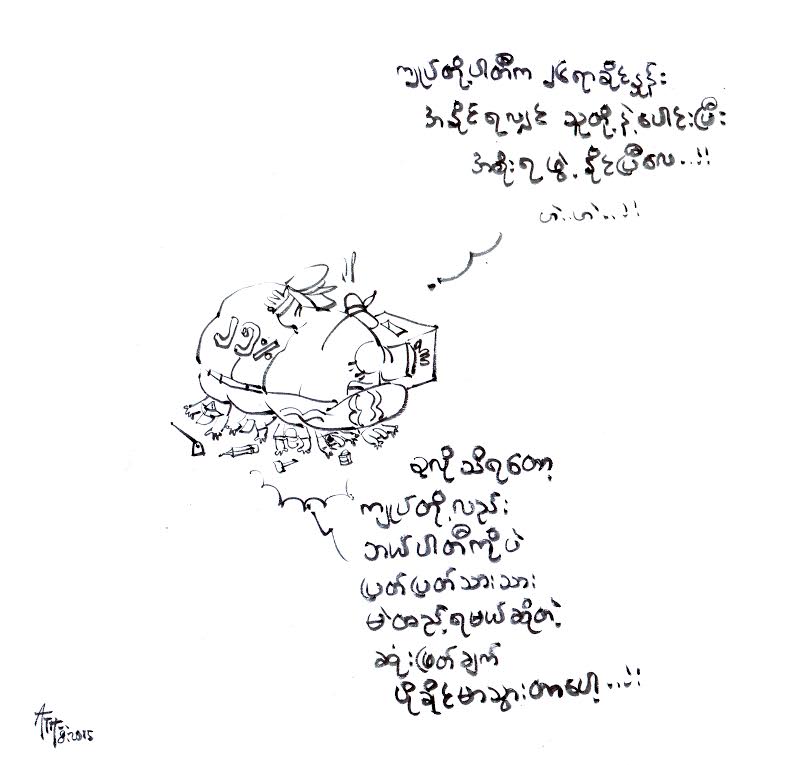 ကျုပ်တို့ပါတီက ၂၆ ရာခိုင်နှုန်း
အနိုင်ရလျှင် သူတို့နဲ့ပေါင်းပြီး
အစိုးရဖွဲ့နိုင်ပြီလေ..!!
ဟဲ..ဟဲ..!!
၂၅%
မဲ
ခုလိုသိရတော့
ကျုပ်တို့လည်း
ဘယ်ပါတီကိုပဲ
ပြတ်ပြတ်သားသား
မဲထည့်ရမယ်ဆိုတဲ့
ဆုံးဖြတ်ချက်
ပိုခိုင်မာသွားတာပေါ့..!!
2015